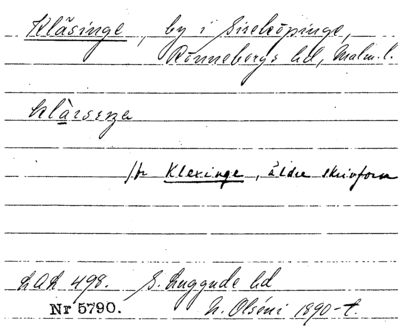 Kläsinge, by i Sireköpinge,
Rönnebergs hd, Malm. l.
/fr Klexinge, äldre skrivform
LAL 498. S. Luggude hd
Nr 5790. N. Olséni 1890-t.